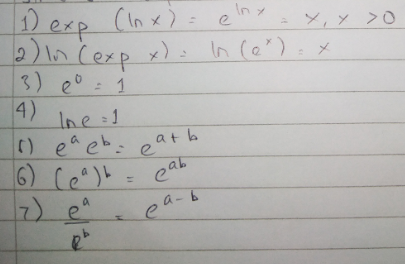 1) exp (ln x) = e^{ln x} = x, x > 0
2) ln (exp x) = ln (e^x) = x
3) e^0 = 1
4) ln e = 1
5) e^a e^b = e^{a+b}
6) (e^a)^b = e^{ab}
7) e^a / e^b = e^{a-b}